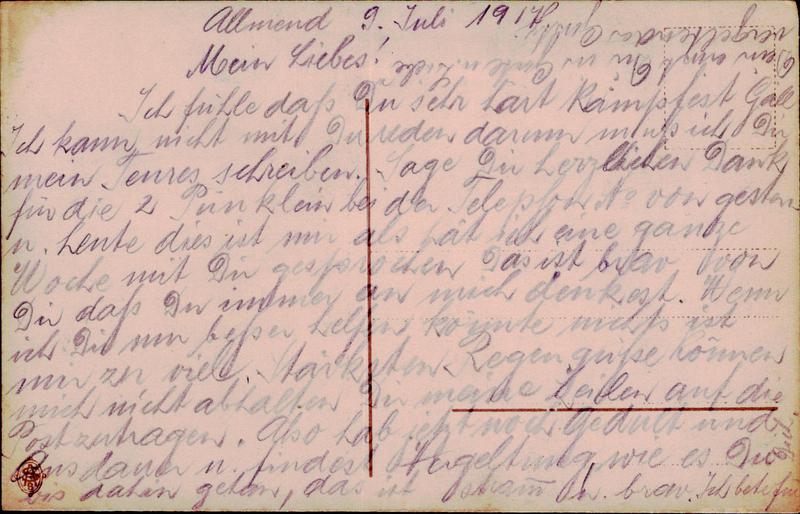 Allmend 9. Juli 1917
Mein Liebes!
Ich fühle daß Du sehr hart kämpfest Gall
Ich kann nicht mit Dir reden darum muß ich Dir
mein Teures schreiben. Sage Dir herzlichen Dank
für die 2 Pünklein bei der Telephon No von gestern
u. heute dies ist mir als hat ich eine ganze
Woche mit Dir gesprochen Das ist brav von
Dir daß Du immer an mich denkest. Wenn
ich Dir nur beßer helfen könnte nichts ist
mir zu viel. Stärksten Regengüße können
mich nicht abhalten Dir meine Zeilen auf die
Post zutragen. Also hab jetzt noch Gedult und
Ausdauer u. findest Vergeltung wie es Du
bis dahin getan, das ist stram u. brav. Ich bete für